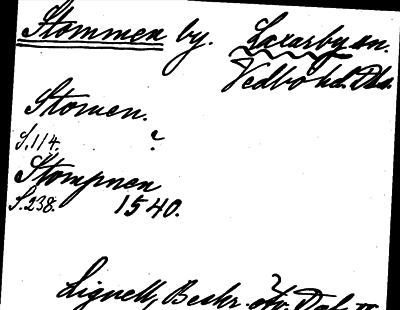 Stommen by. Laxarby sn.
Vedbo hd. Dls.
Stomen.
S. 114. ?
Stompnen
S. 238. 1540.
Lignell, Beskr. Dal. II